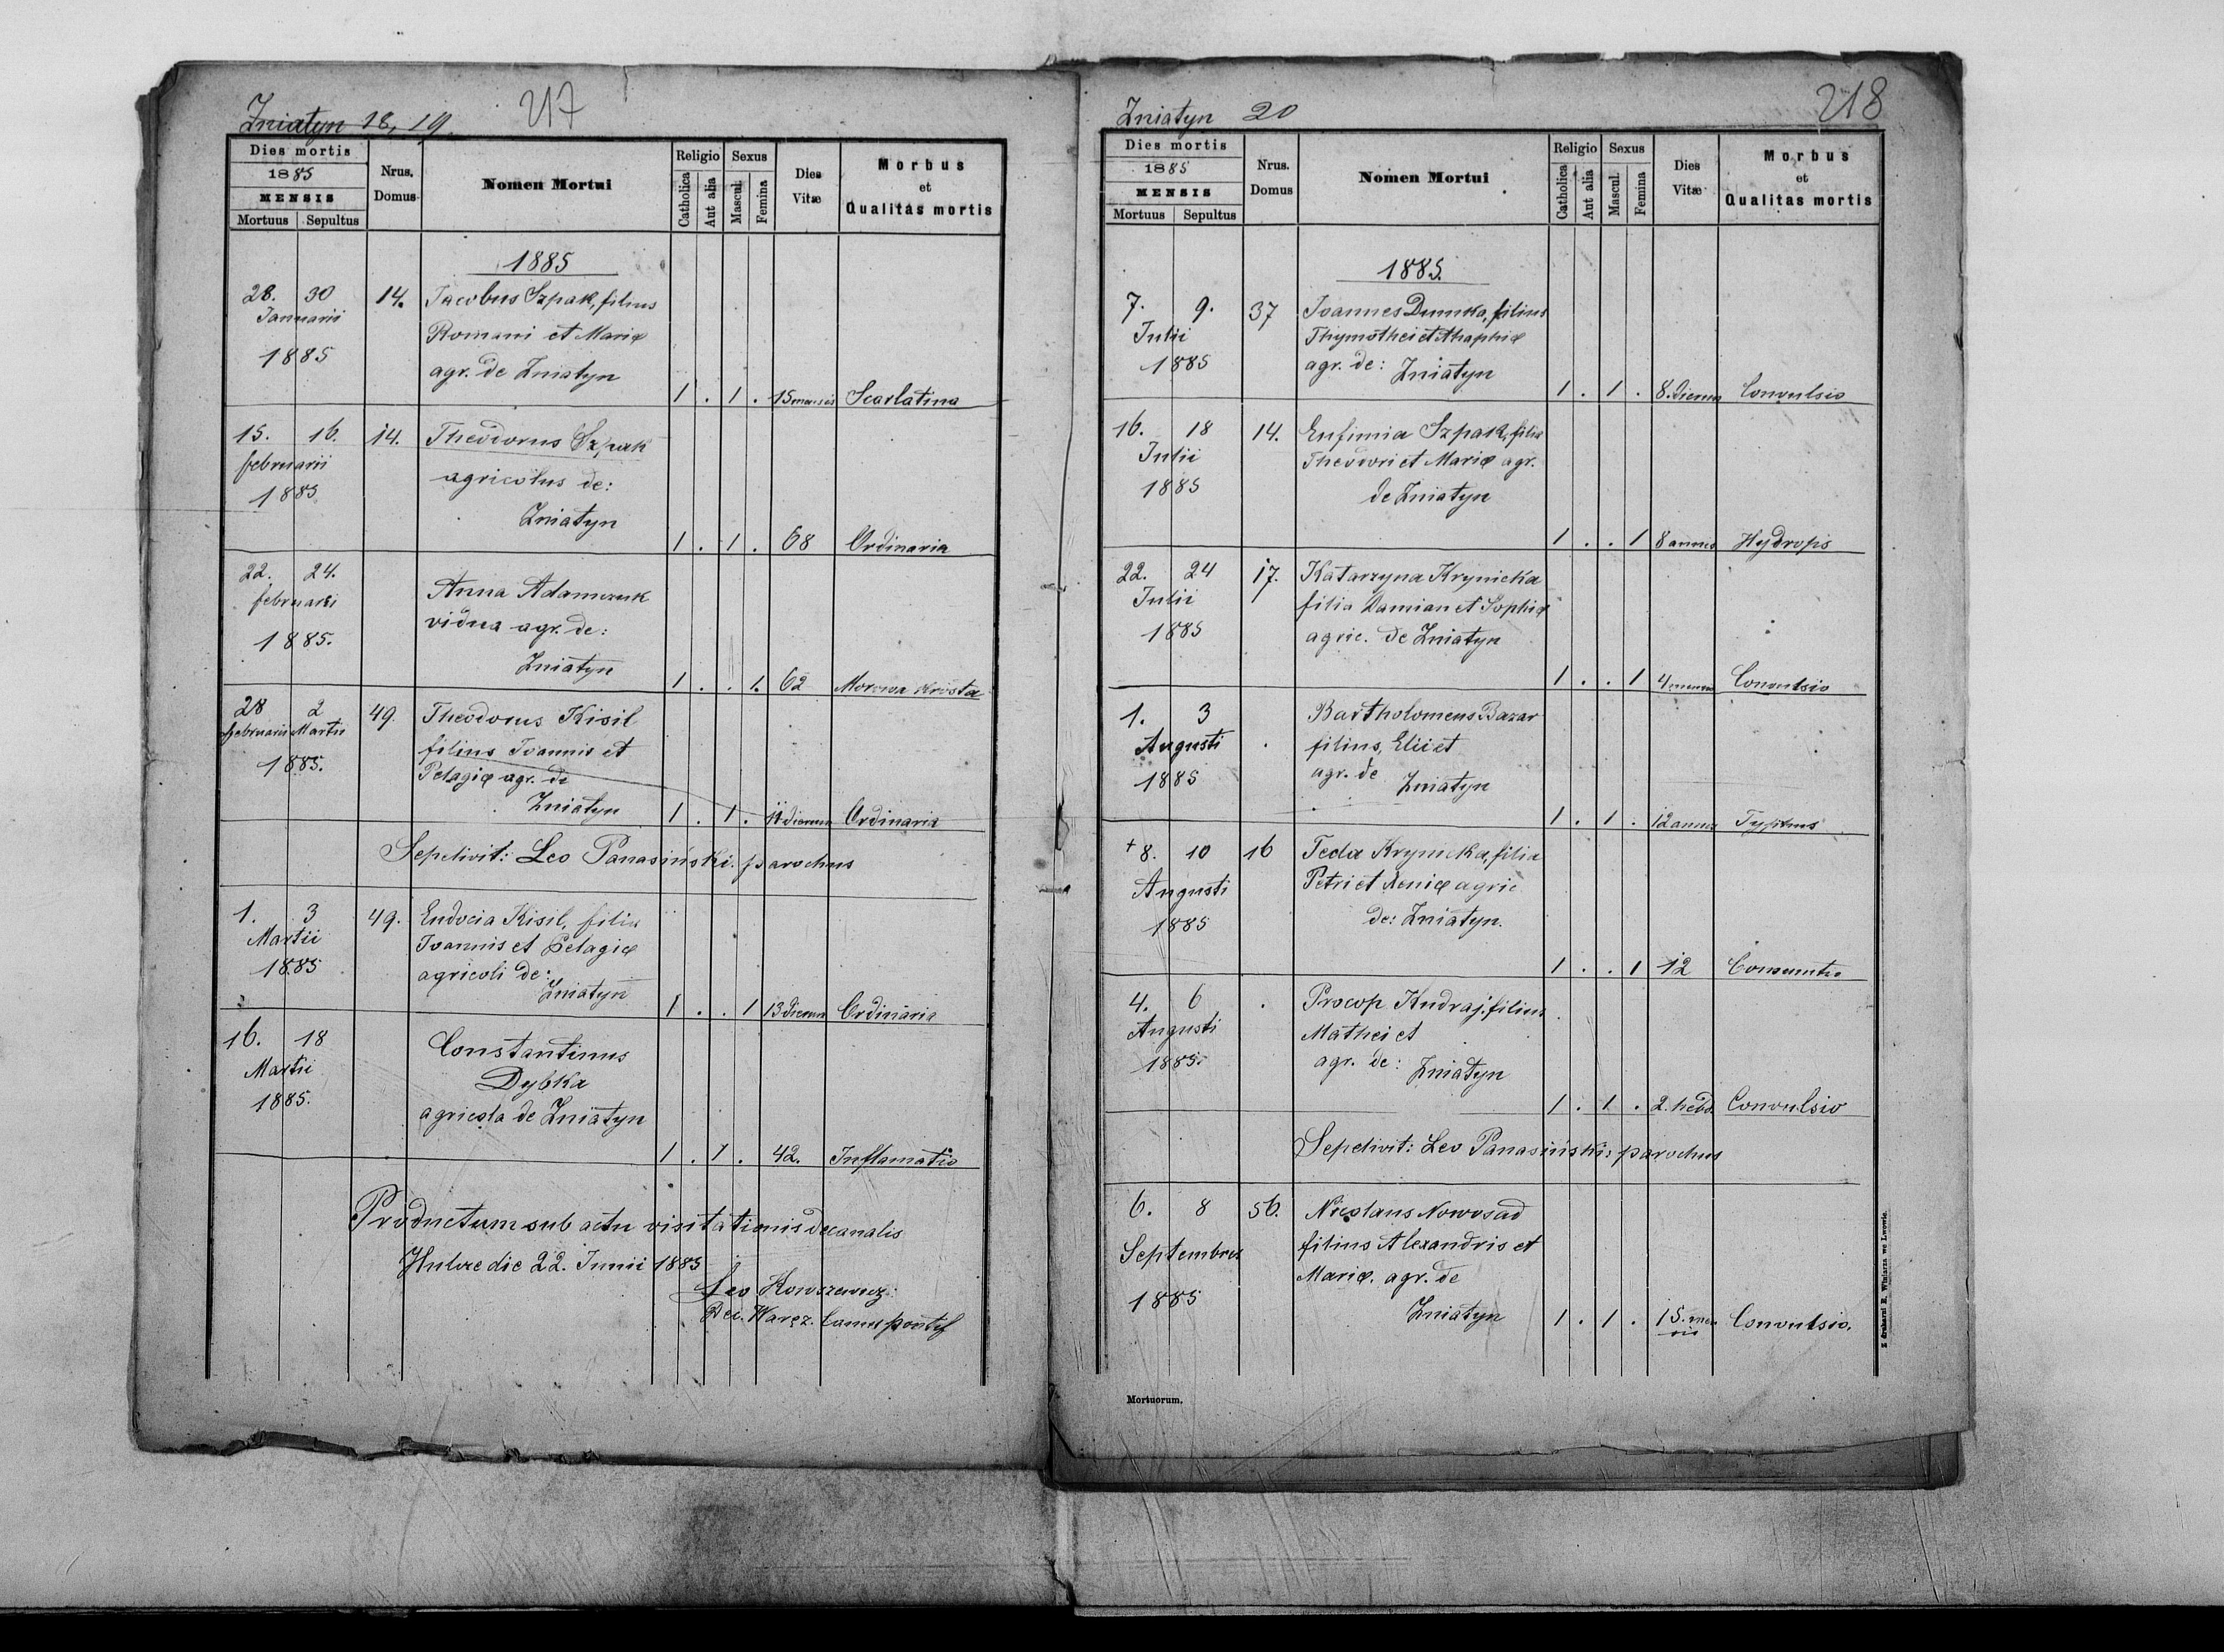 Zniatyn 18, 19.
217
Dies mortis
1885
MENSIS
Mortuus Sepultus
Nrus. Domus
Nomen Mortui
Religio
Catholica
Aut alia
Sexus
Mascul.
Femina
Dies Vitæ
Morbus et Qualitas mortis
1885
28. 30 14. Jacobus Szpak, filius
Januarii Romani et Mariæ
1885 agr. de Zniatyn
1 . 1 . 15 mensis Scarlatina
15. 16. 14. Theodorus Szpak
februarii agricolus de:
1885 Zniatyn
1 . 1 . 68 Ordinaria
22. 24. Anna Adamczuk
februarii vidua agr. de:
1885. Zniatyn
1 . . 1. 62 Morowa krosta
28 2 49. Theodorus Kisil
februarii Martii filius Ioannis et
1885. Pelagiæ agr. de
Zniatyn 1 . 1 . 11 dierum Ordinaria
Sepelivit: Leo Panasiński parochus
1. 3 49. Eudocia Kisil, filia
Martii Ioannis et Pelagiæ
1885 agricoli de:
Zniatyn 1 . . 1 13 dierum Ordinaria
16. 18 Constantinus
Martii Dybka
1885. agricola de Zniatyn
1 . 1 . 42. Inflamatio
Productum sub actu visitationis decanalis
die 22. Junii 1885
Leo
Zniatyn 20
218
Dies mortis
1885
MENSIS
Mortuus Sepultus
Nrus. Domus
Nomen Mortui
Religio
Catholica
Aut alia
Sexus
Mascul.
Femina
Dies Vitæ
Morbus et Qualitas mortis
1885.
7. 9. 37 Ioannes Dumka, filius
Iulii Thymothei et
1885 agr. de: Zniatyn
1 . 1 . 8. dierum Convulsio
16. 18 14. Eufimia Szpak, filia
Iulii Theodori et Mariæ agr.
1885 de Zniatyn
1 . . 1 8 annis Hydropis
22. 24 17. Katarzyna Krynicka
Iulii filia Damian et Sophiæ
1885 agric. de Zniatyn
1 . . 1 4 Convulsio
1. 3 . Bartholomeus Bazar
Augusti filius, Elii et
1885 agr. de Zniatyn
1 . 1 . 12 annis Typhus
+ 8. 10 16 Teda Krynicka, filia
Augusti Petri et Xeniæ agric
1885 de: Zniatyn.
1 . . 1 12
4. 6 . Procop Kudraj. filius
Augusti Mathei et
1885. agr. de: Zniatyn
1 . 1 . 2. hebd. Convulsio
Sepelivit: Leo Panasiński: parochus
6. 8 56. Nicolaus Nowosad
Septembris filius Alexandris et
1885 Mariæ. agr. de
Zniatyn 1 . 1 . 15. mensis Convulsio.
Mortuorum.
Z drukarni E. Winiarza we Lwowie.